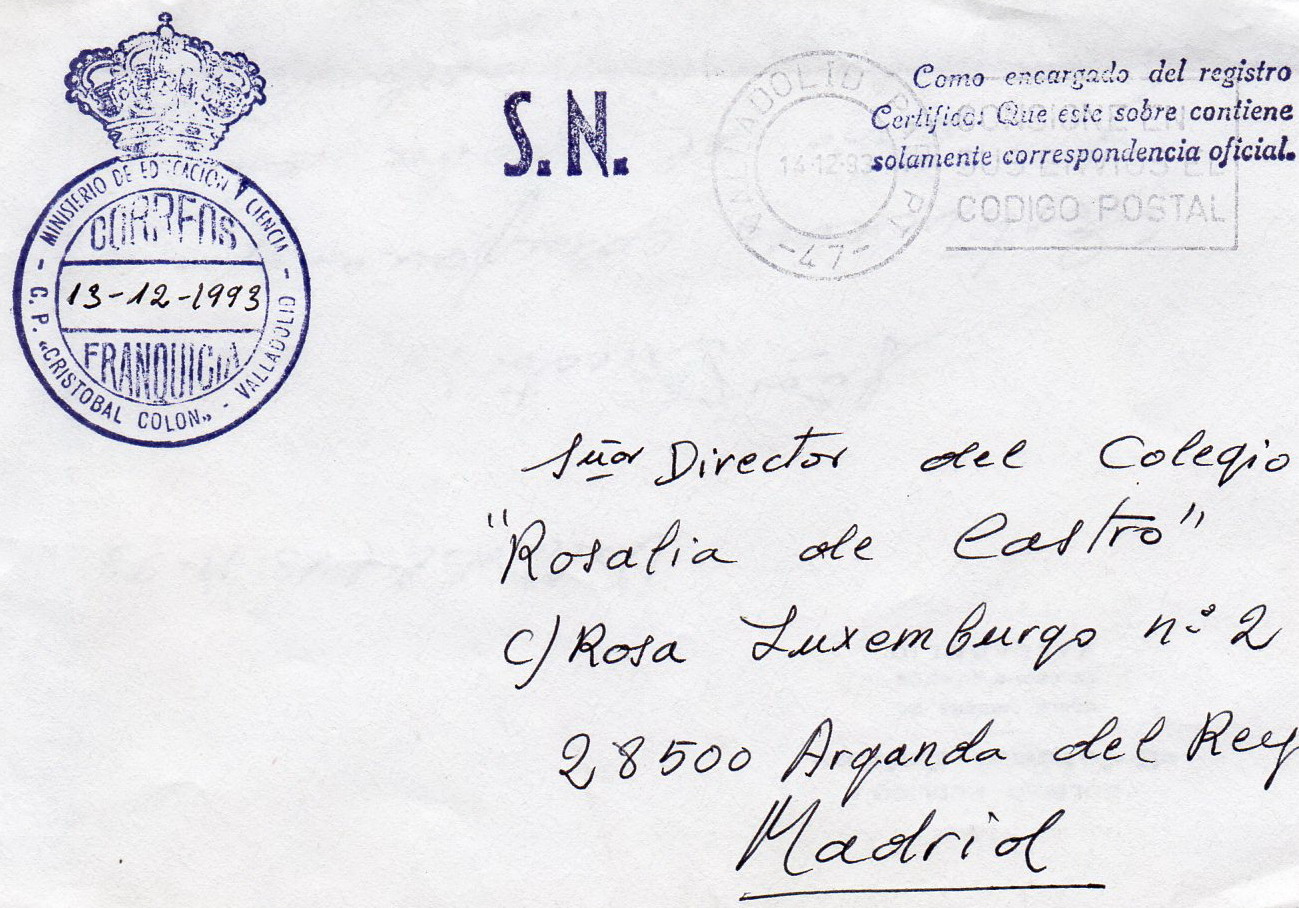 MINISTERIO DE EDUCACION Y CIENCIA
CORREOS
13-12-1993
FRANQUICIA
- C. P. «CRISTOBAL COLON» - VALLADOLID -
S.N.
VALLADOLID
14-12-93
-47-
CODIGO POSTAL
Como encargado del registro
Certifico: Que este sobre contiene
solamente correspondencia oficial.
Señor Director del Colegio
"Rosalia de Castro"
C) Rosa Luxemburgo nº 2
28500 Arganda del Rey
Madrid